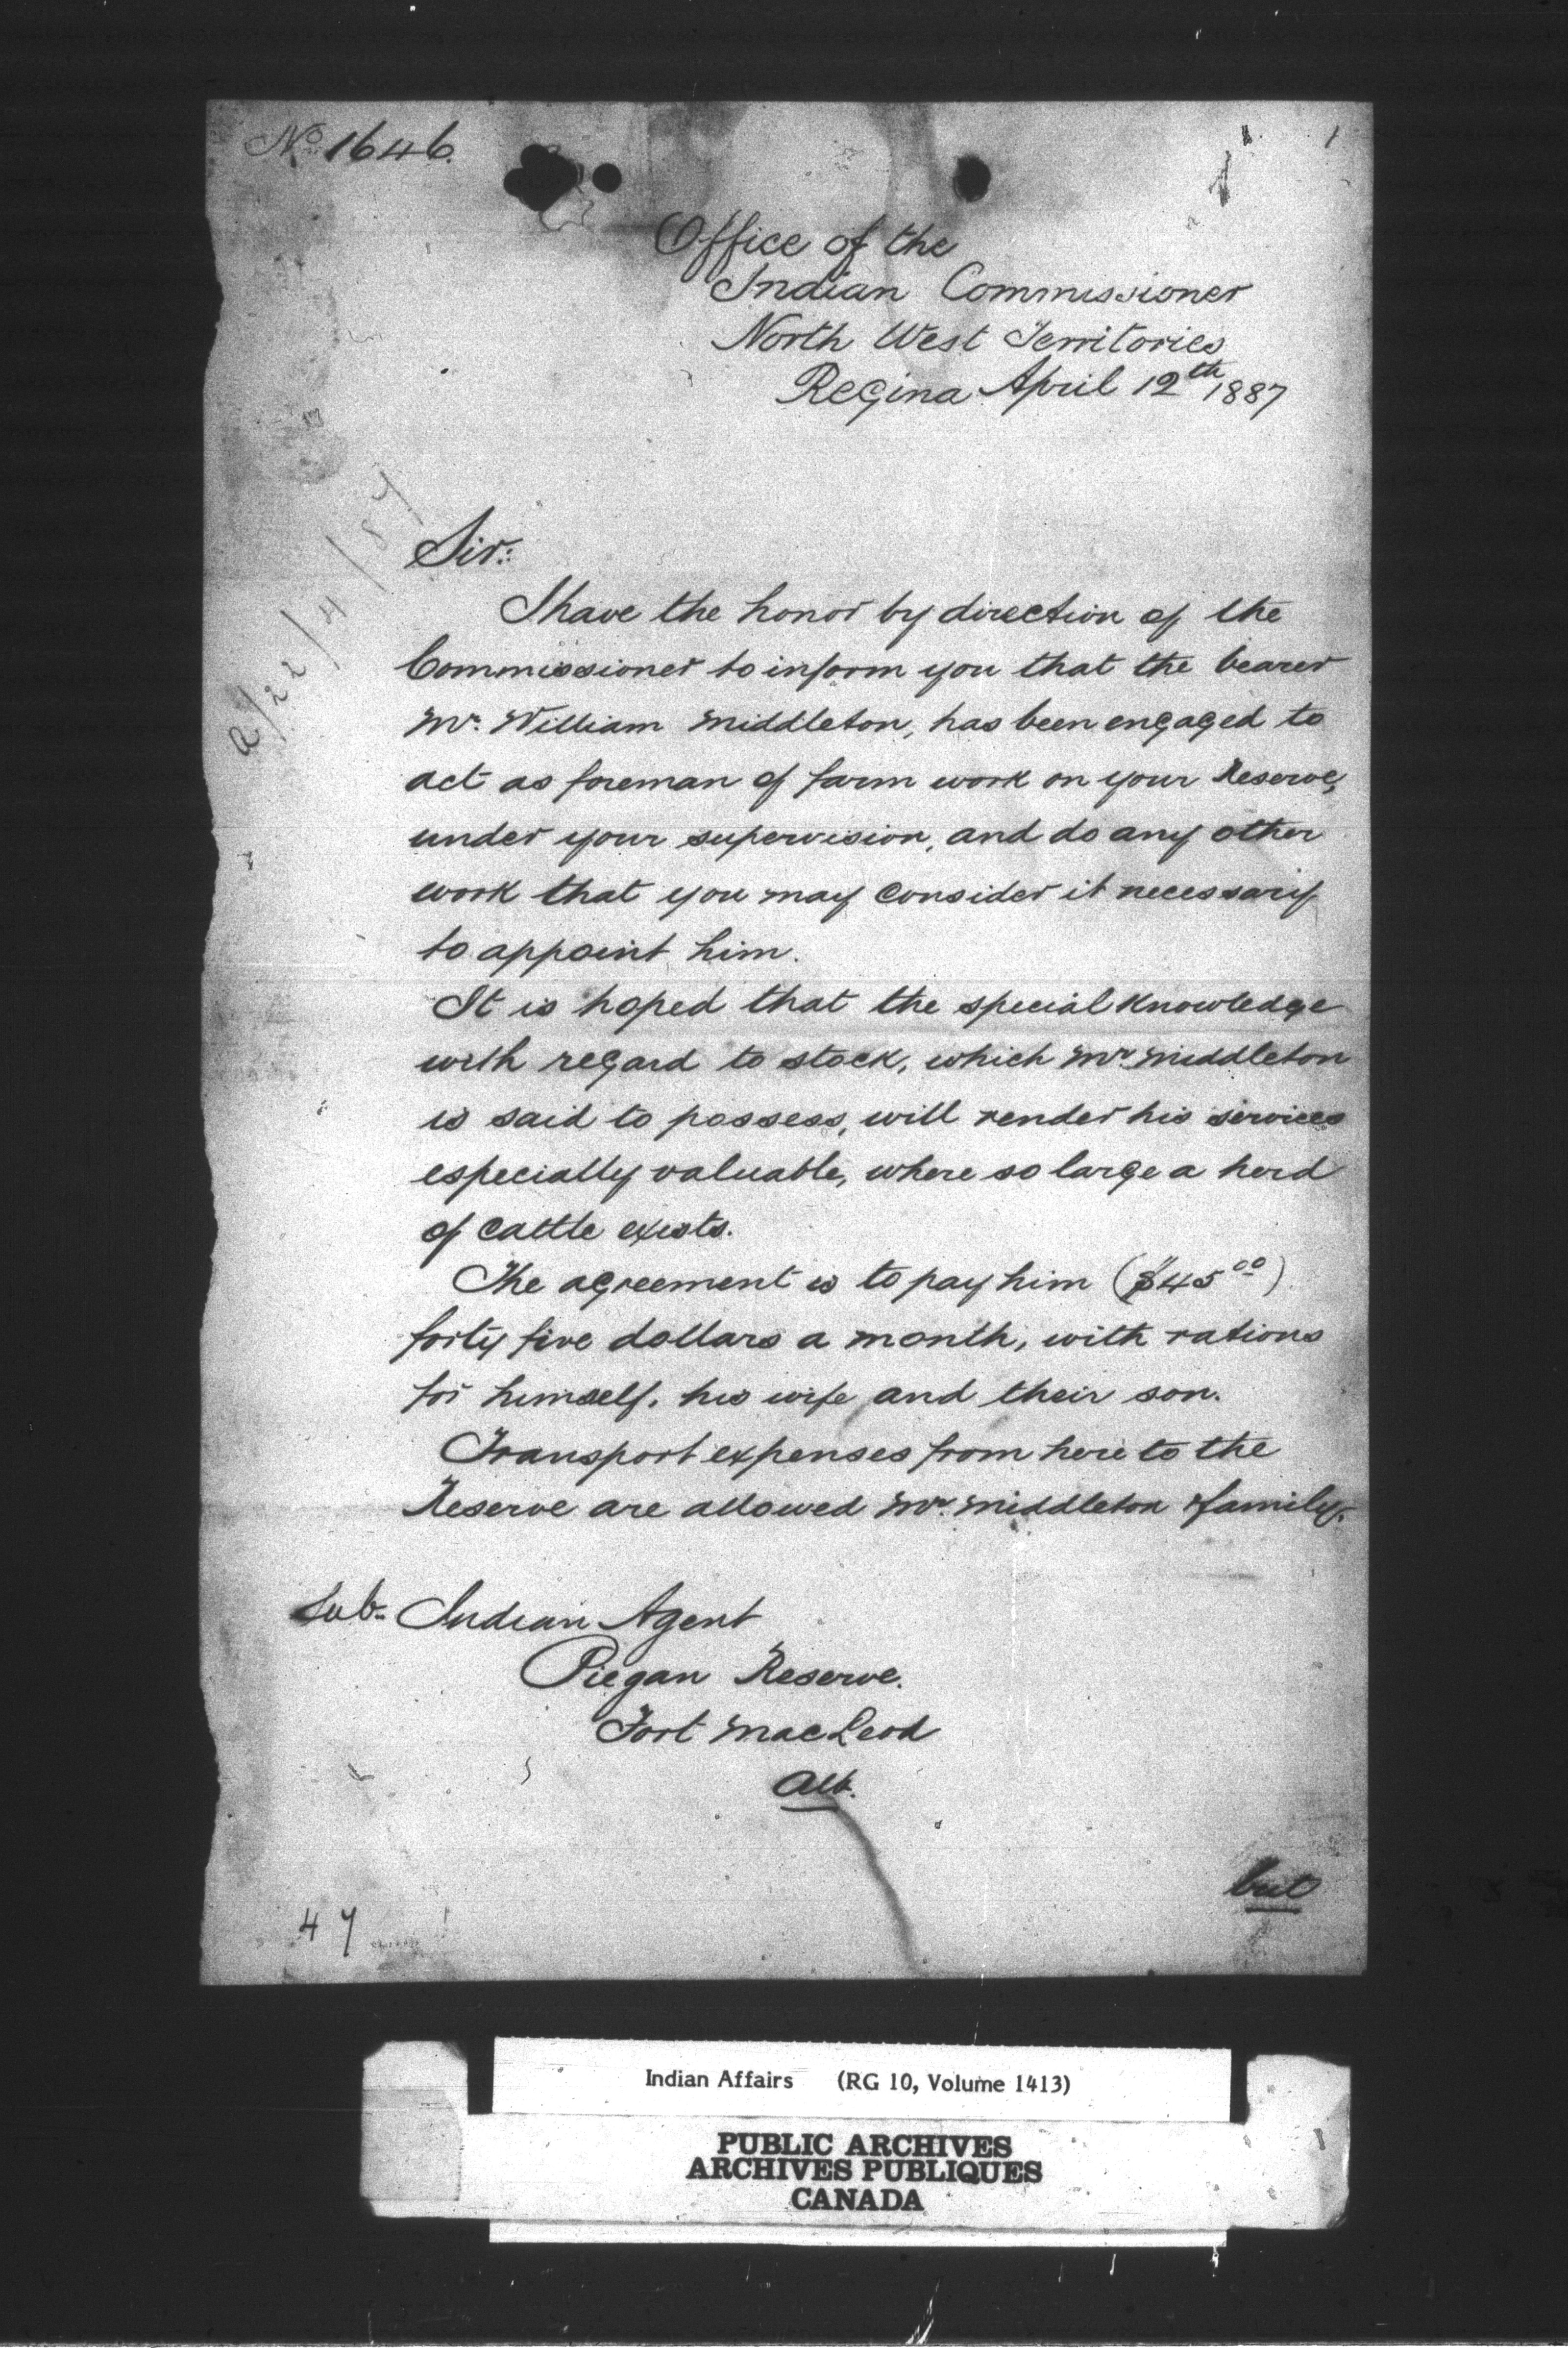 No 1646.
Office of the
Indian Commissioner
North West Territories
Regina April 12th 1887
a/22/4/87
Sir:
I have the honor by direction of the
Commissioner to inform you that the bearer
Mr. William Middleton, has been engaged to
act as foreman of farm work on your Reserve,
under your supervision, and do any other
work that you may consider it necessary
to appoint him.
It is hoped that the special knowledge
with regard to stock, which Mr. Middleton
is said to possess, will render his services
especially valuable, where so large a herd
of cattle exists.
The agreement is to pay him ($45.00)
forty five dollars a month, with rations
for himself, his wife and their son.
Transport expenses from here to the
Reserve are allowed Mr. Middleton & family.
Sub-Indian Agent
Piegan Reserve.
Fort MacLeod
Alb.
but
47
Indian Affairs (RG 10, Volume 1413)
PUBLIC ARCHIVES
ARCHIVES PUBLIQUES
CANADA